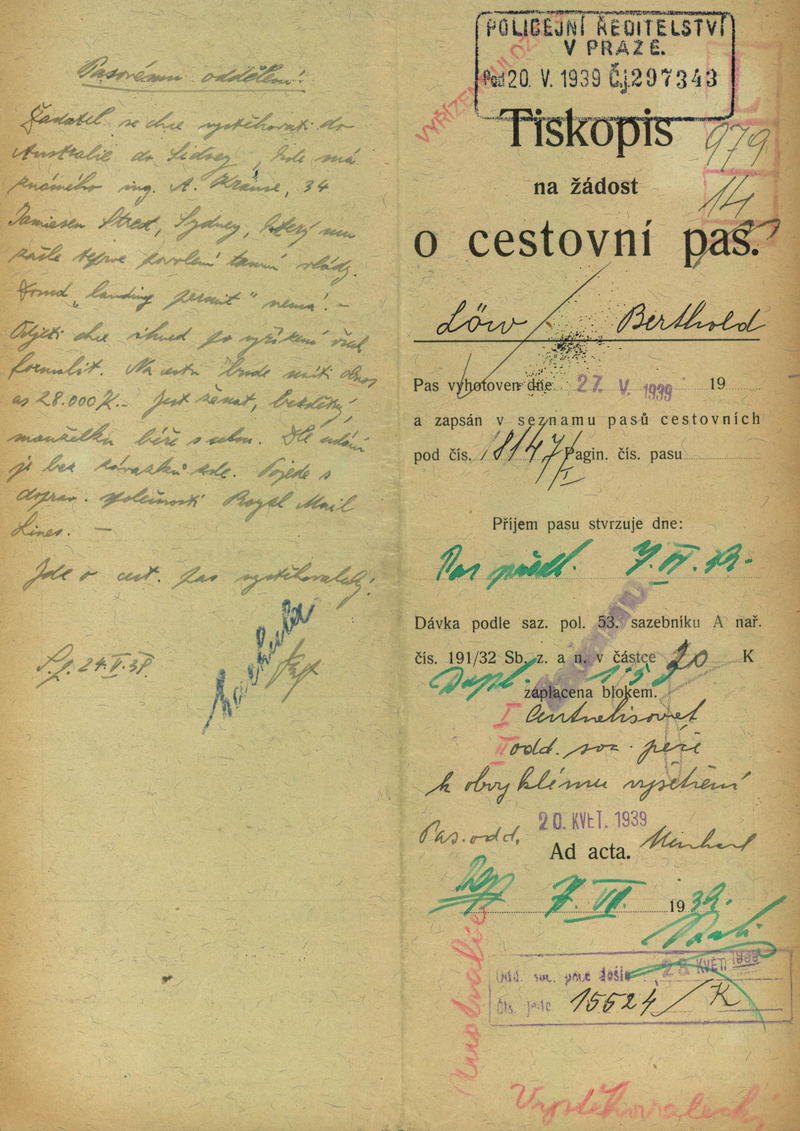 Pasovému oddělení!
Žadatel se chce vystěhovati do
Australie do Sidney, kde má
známého ing. A. Krause, 34
Jamiesen Street, Sydney, který mu
zašle teprve povolení tamní vlády.
"landing permit" nemá! -
Odjeti chce ihned po vyřízení všech
formalit. Na cestu bude míti obnos
as 28.000 K.- Jest ženat, bezdětný,
manželku béře s sebou. Dle udání
je bez závazků zde. Pojede s
doprav. společností Royal Mail
Lines. -
Jde o cest. pas vystěhovalecký.
24.V.39.
POLICEJNÍ ŘEDITELSTVÍ
V PRAZE.
20. V. 1939 Čj. 297343
VYŘÍZENO
Tiskopis
979
14
na žádost
o cestovní pas.
Löw Berthold
Pas vyhotoven dne 27. V. 1939 19
a zapsán v seznamu pasů cestovních
pod čís. 18147/I Pagin. čís. pasu
Příjem pasu stvrzuje dne:
Pas předl. 7. VI. 39.
Dávka podle saz. pol. 53. sazebníku A nař.
čís. 191/32 Sb. z. a n. v částce 20 K
Dopl.
zaplacena blokem.
I Centralisovat
II odd. soc. péče
k obvyklému vyšetření
20. KVĚT. 1939
Pas. odd.
Ad acta.
7. VII. 1939.
Odd. soc. péče došlo 23 KVĚT. 1939
Čís. jedn. 15524/K
Australie
Vystěhovalecký